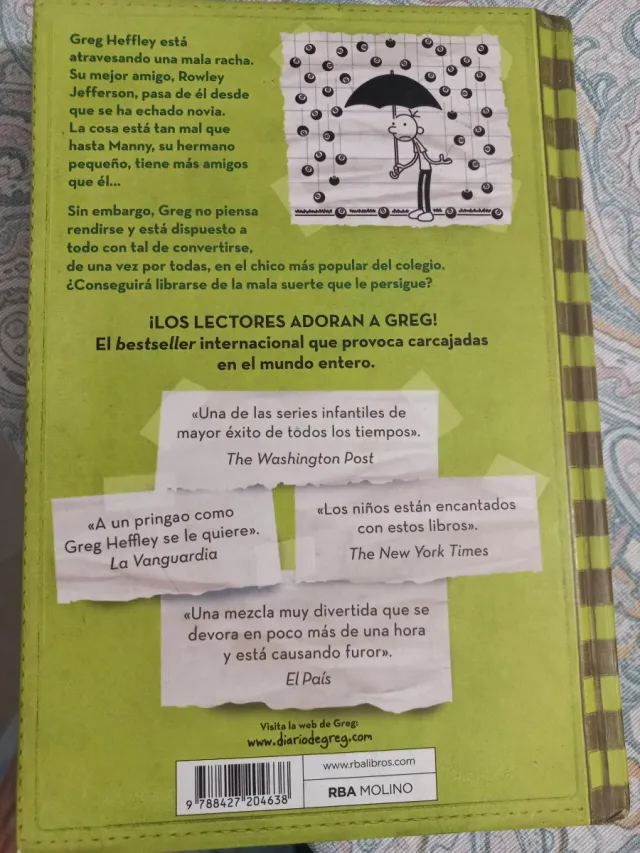 Greg Heffley está
atravesando una mala racha.
Su mejor amigo, Rowley
Jefferson, pasa de él desde
que se ha echado novia.
La cosa está tan mal que
hasta Manny, su hermano
pequeño, tiene más amigos
que él...
Sin embargo, Greg no piensa
rendirse y está dispuesto a
todo con tal de convertirse,
de una vez por todas, en el chico más popular del colegio.
¿Conseguirá librarse de la mala suerte que le persigue?
¡LOS LECTORES ADORAN A GREG!
El bestseller internacional que provoca carcajadas
en el mundo entero.
«Una de las series infantiles de
mayor éxito de todos los tiempos».
The Washington Post
«A un pringao como
Greg Heffley se le quiere».
La Vanguardia
«Los niños están encantados
con estos libros».
The New York Times
«Una mezcla muy divertida que se
devora en poco más de una hora
y está causando furor».
El País
Visita la web de Greg:
www.diariodegreg.com
www.rbalibros.com
RBA MOLINO
9 788427 204638